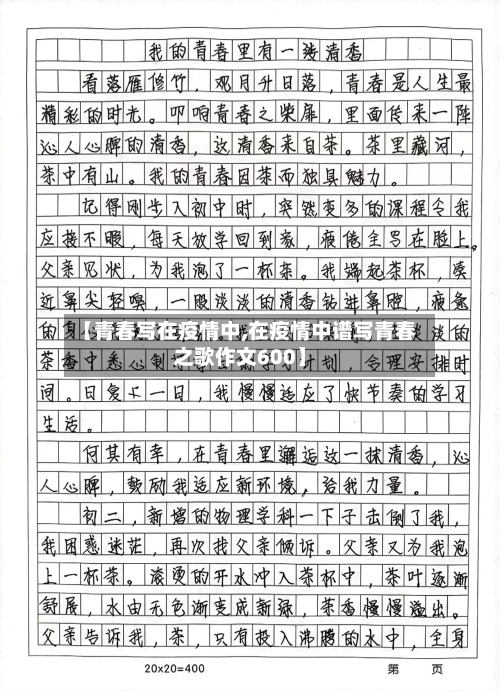 我的青春里有一缕清香
看落雁修竹，观月升日落，青春是人生最
精彩的时光。叩响青春之柴扉，里面传来一阵
沁人心脾的清香，这清香来自茶。茶里藏河，
茶中有山。我的青春因茶而独具魅力。
记得刚步入初中时，突然变多的课程令我
应接不暇，每天放学回到家，疲倦全写在脸上。
父亲见状，为我泡了一杯茶。我端起茶杯，凑
近鼻尖轻嗅，一股淡淡的清香钻进鼻腔，疲惫
的身心
【青春写在疫情中,在疫情中谱写青春
之歌作文600】
茶香中悉心制 学习计划，合理安排时
间。日复一日，我慢慢适应了快节奏的学习
生活。
何其有幸，在青春里邂逅这一抹清香，沁
人心脾，鼓励我适应新环境，给我力量。
初二，新增的物理学科一下子击倒了我，
我困惑迷茫，再次找父亲倾诉。父亲又为我泡
上一杯茶。滚烫的开水冲入茶杯中，茶叶逐渐
舒展，水由无色渐变成新绿，茶香慢慢溢出。
父亲告诉我，茶，只有投入沸腾的水中，全身
20×20=400 第 页